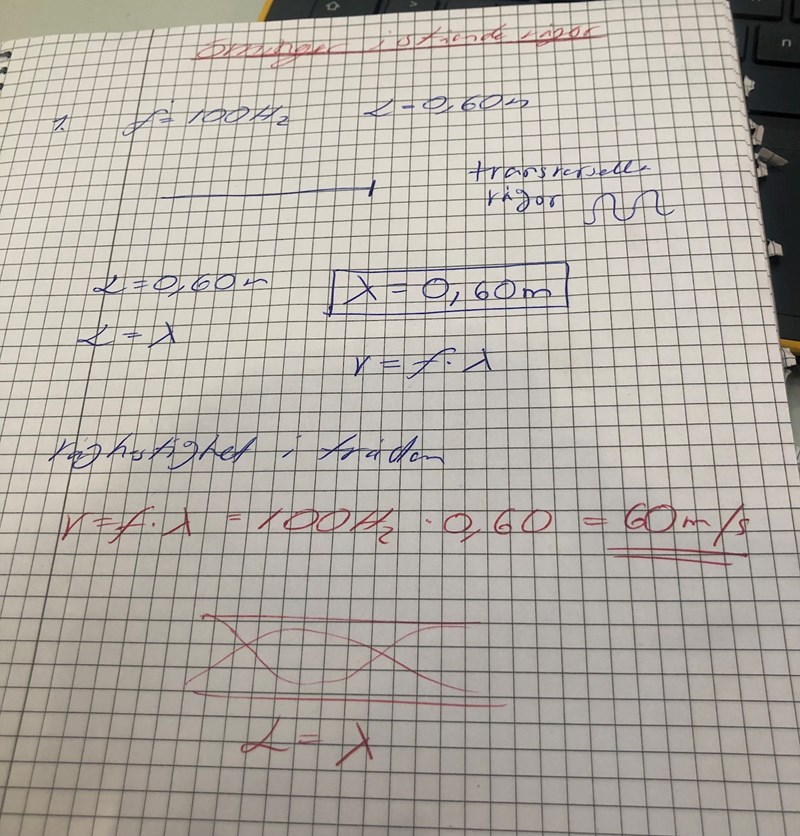 Övningar i stående vågor
1. f = 100Hz L = 0,60m
transversella
vågor
L = 0,60m λ = 0,60m
L = λ
v = f · λ
våghastighet i tråden
v = f · λ = 100Hz · 0,60 = 60m/s
L = λ